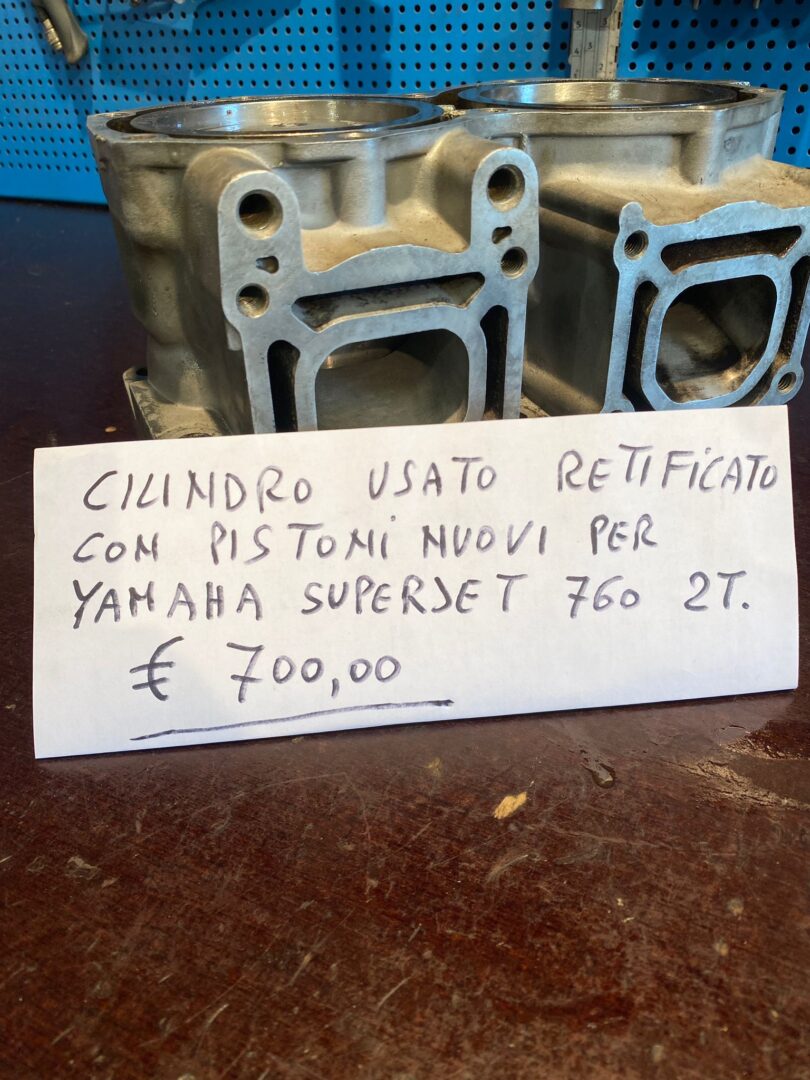 CILINDRO USATO RETIFICATO
CON PISTONI NUOVI PER
YAMAHA SUPERJET 760 2T.
€ 700,00